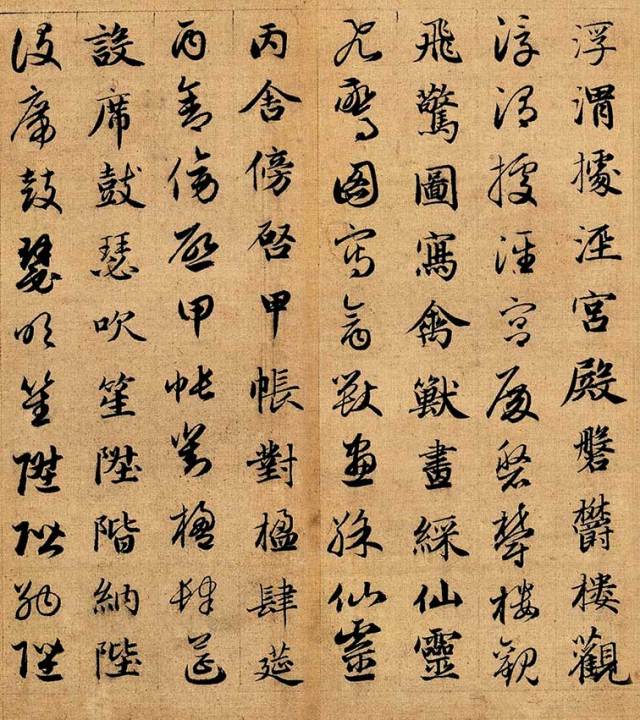 浮渭據涇宮殿磐欝樓觀
浮渭據涇宮殿磐欝樓觀
飛驚圖寫禽獸畫綵仙靈
飛驚圖寫禽獸畫綵仙靈
丙舍傍啓甲帳對楹肆筵
丙舍傍啓甲帳對楹肆筵
設席鼓瑟吹笙陞階納陛
設席鼓瑟吹笙陞階納陛